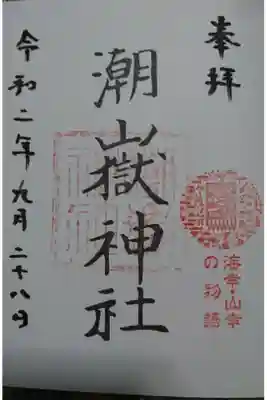 奉拝
海幸・山幸
の物語
潮嶽神社
令和二年九月二十八日